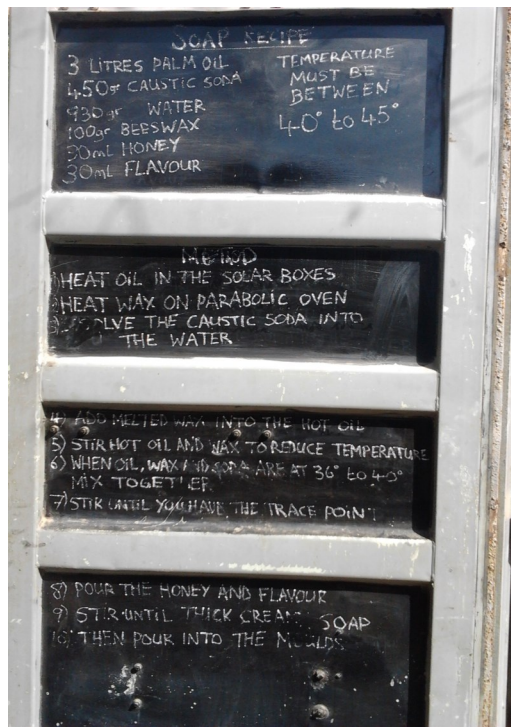 SOAP RECIPE
3 LITRES PALM OIL
450gr CAUSTIC SODA
930gr WATER
100gr BEESWAX
90mL HONEY
30mL FLAVOUR
TEMPERATURE
MUST BE
BETWEEN
40° to 45°
METOD
1) HEAT OIL IN THE SOLAR BOXES
2) HEAT WAX ON PARABOLIC OVEN
3) THE CAUSTIC SODA INTO
THE WATER
4) ADD MELTED WAX INTO THE HOT OIL
5) STIR HOT OIL AND WAX TO REDUCE TEMPERATURE
6) WHEN OIL, WAX AND SODA ARE AT 36° to 40°
MIX TOGETHER
7) STIR UNTIL YOU HAVE THE TRACE POINT
8) POUR THE HONEY AND FLAVOUR
9) STIR UNTIL THICK CREAM SOAP
10) THEN POUR INTO THE MOULDS